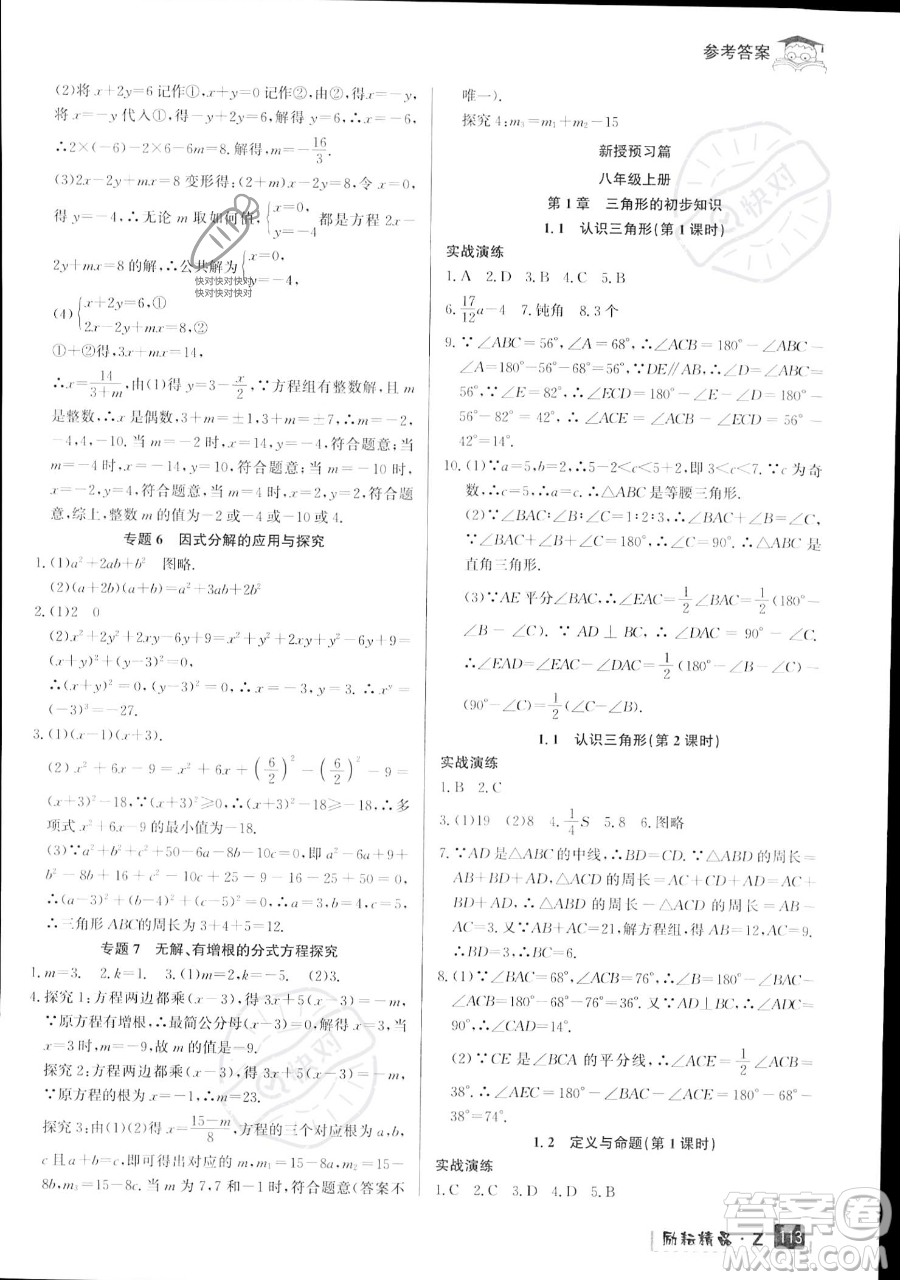 参考答案
(2)将 x+2y=6 记作①,x+y=0 记作②,由②,得 x=-y,
将 x=-y 代入①,得-y+2y=6,解得 y=6,∴x=-6.
∴2×(-6)-2×6-6m+8=0.解得,m=-16/3.
(3)2x-2y+mx=8 变形得:(2+m)x-2y=8,令 x=0,
得 y=-4,∴无论 m 取如何值,{x=0, y=-4 都是方程 2x-
2y+mx=8 的解,∴公共解为{x=0, y=-4.
快对快对快对
快对快对快对
(4){x+2y=6,① 2x-2y+mx=8,②
①+②得,3x+mx=14,
∴x=14/(3+m),由(1)得 y=3-x/2,∵方程组有整数解,且 m
是整数,∴x 是偶数,3+m=±1,3+m=±7,∴m=-2,
-4,4,-10.当 m=-2 时,x=14,y=-4,符合题意;当
m=-4 时,x=-14,y=10,符合题意;当 m=4 时,x=
2,y=2,符合题意;当 m=-10 时,x=-2,y=4,符合题
意,综上,整数 m 的值为-2 或-4 或-10 或 4.
专题 6 因式分解的应用与探究
1.(1)a²+2ab+b² 图略.
(2)(a+2b)(a+b)=a²+3ab+2b²
2.(1)2 0
(2)x²+2y²+2xy-6y+9=x²+y²+2xy+y²-6y+9=0,
∴(x+y)²+(y-3)²=0,∴x+y=0,y=3,x=-3,∴xʸ=
(-3)³=-27.
3.(1)(x-1)(x-3).
(2)x²+6x-9=x²+6x+(6/2)²-(6/2)²-9=
(x+3)²-18,∵(x+3)²≥0,∴(x+3)²-18≥-18,∴多
项式 x²+6x-9 的最小值为-18.
(3)∵a²+b²+c²+50=6a+8b+10c,即 a²-6a+9+
b²-8b+16+c²-10c+25=0,∴(a-3)²+(b-4)²+
(c-5)²=0,∴a-3=0,b-4=0,c-5=0,a=3,b=4,c=5,
∴三角形 ABC的周长为 3+4+5=12.
专题 7 无解、有增根的分式方程探究
1.m=3. 2.k=1. 3.(1)m=-4 或 m=-5. (2)3.
4.探究 1:方程两边都乘(x-3),得 3x+5(x-3)=-m,
∵原方程有增根,∴最简公分母(x-3)=0,解得 x=3,当
x=3 时,m=-9,故 m 的值是-9.
探究 2:方程两边都乘(x-3),得 3x+5(x-3)=-m,
∵原方程的根为 x=-1,∴m=23.
探究 3:由(1)(2)得 x=(15-m)/8,∵方程的三个对应根为 a,b,
c 且 a+b=c,即可得出对应的 m₁=15-8a,m₂=15-
8b,m₃=15-8c.当 m 为 7,7 和-1 时,符合题意(答案不
唯一).
探究 4:m₃=m₁+m₂-15
新授预习篇
八年级上册
第 1 章 三角形的初步知识
1.1 认识三角形(第 1 课时)
实战演练
1.A 2.D 3.B 4.C 5.B
6.17/12a-4 7.钝角 8.3 个
9.∵∠ABC=56°,∠A=68°,∴∠ACB=180°-∠ABC-
∠A=180°-56°-68°=56°.∵DE∥AB,∴∠ECD=∠ABC=
56°.∵∠E=82°,∴∠ECD=180°-∠E-∠ECD=180°-
56°-82°=42°,∴∠ACE=∠ACB-∠ECD=56°-
42°=14°.
10.(1)∵a=5,b=2,∴5-2<c<5+2,即 3<c<7.∵c 为奇
数,∴c=5,∴a=c.∴△ABC是等腰三角形.
(2)∵∠A∶∠B∶∠C=1∶2∶3,∠A+∠B+∠C=
180°,∴∠A=30°,∠B=60°,∠C=90°,∴△ABC 是
直角三角形.
(3)∵AE 平分∠BAC,∴∠EAC=1/2∠BAC=1/2(180°
-∠B-∠C).∵AD⊥BC,∴∠DAC=90°-∠C,
∴∠EAD=∠EAC-∠DAC=1/2(180°-∠B-∠C)-
(90°-∠C)=1/2(∠C-∠B).
1.1 认识三角形(第 2 课时)
实战演练
1.B 2.C
3.(1)19 (2)8 4.1/4S 5.8 6.图略
7.∵AD是△ABC的中线,∴BD=CD.∵△ABD的周长=
AB+AD+BD,△ACD 的周长=AC+AD+CD,∴15+
BD+AC+CD=AB+AC+BC,∵△ABC 的周长=21,
∴15+2BD+AC=21,解得 2BD+AC=6.∵AC=3.
∴BD=3.
8.(1)∵∠BAC=68°,∠BCA=76°,∴∠ABC=180°-
∠BAC-∠BCA=36°.又∵AD⊥BC,∴∠ADC=90°,
∴∠CAD=14°.
(2)∵CE 是∠BCA 的平分线,∴∠ACE=1/2∠ACB=
38°.又∵∠BAC=68°,∴∠AEC=180°-68°-
38°=74°.
1.2 定义与命题(第 1 课时)
实战演练
1.C 2.C 3.D 4.D 5.B
励耘精品·Z 113